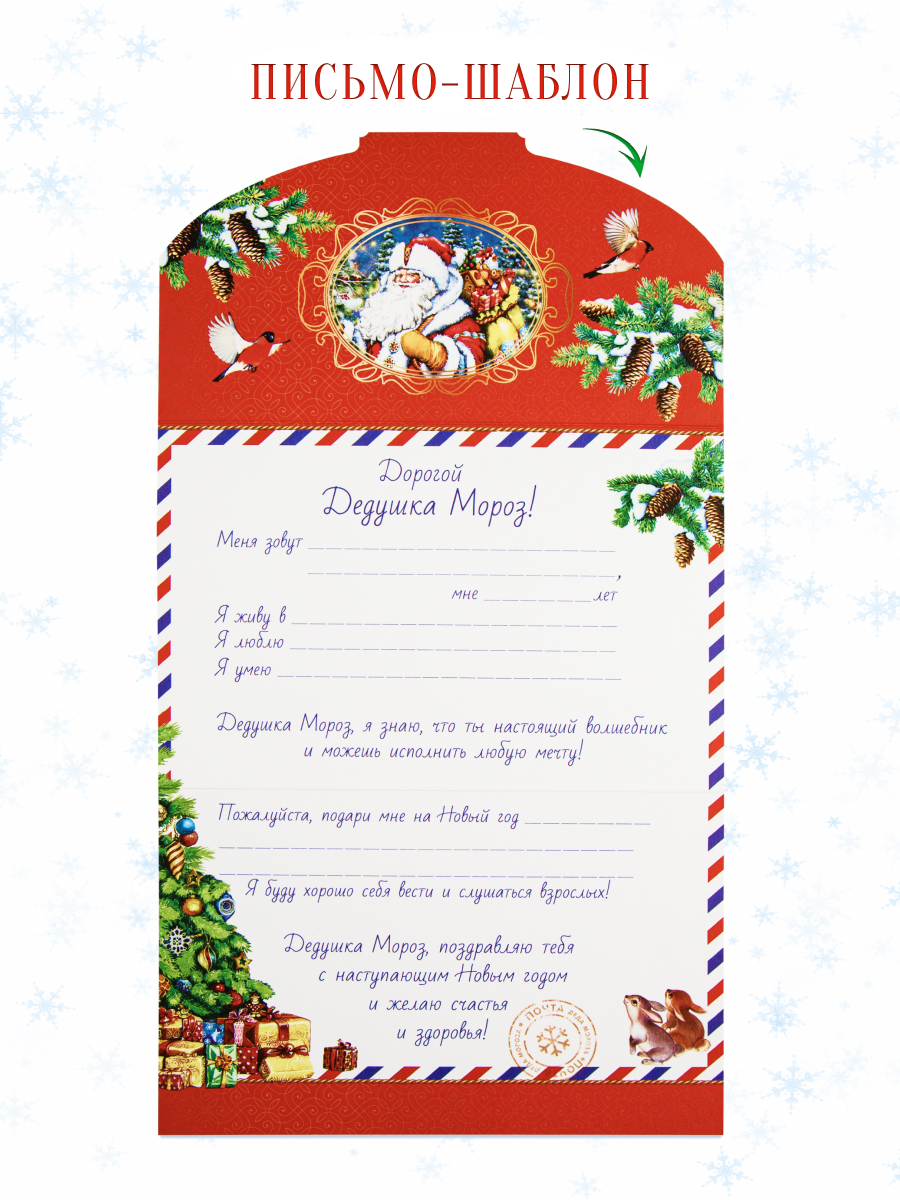 ПИСЬМО-ШАБЛОН
Дорогой
Дедушка Мороз!
Меня зовут ______________________________
______________________________,
мне __________ лет
Я живу в ______________________________
Я люблю ______________________________
Я умею ______________________________
Дедушка Мороз, я знаю, что ты настоящий волшебник
и можешь исполнить любую мечту!
Пожалуйста, подари мне на Новый год ____________
________________________________________
________________________________________
Я буду хорошо себя вести и слушаться взрослых!
Дедушка Мороз, поздравляю тебя
с наступающим Новым годом
и желаю счастья
и здоровья!
ПОЧТА ДЕДА МОРОЗА